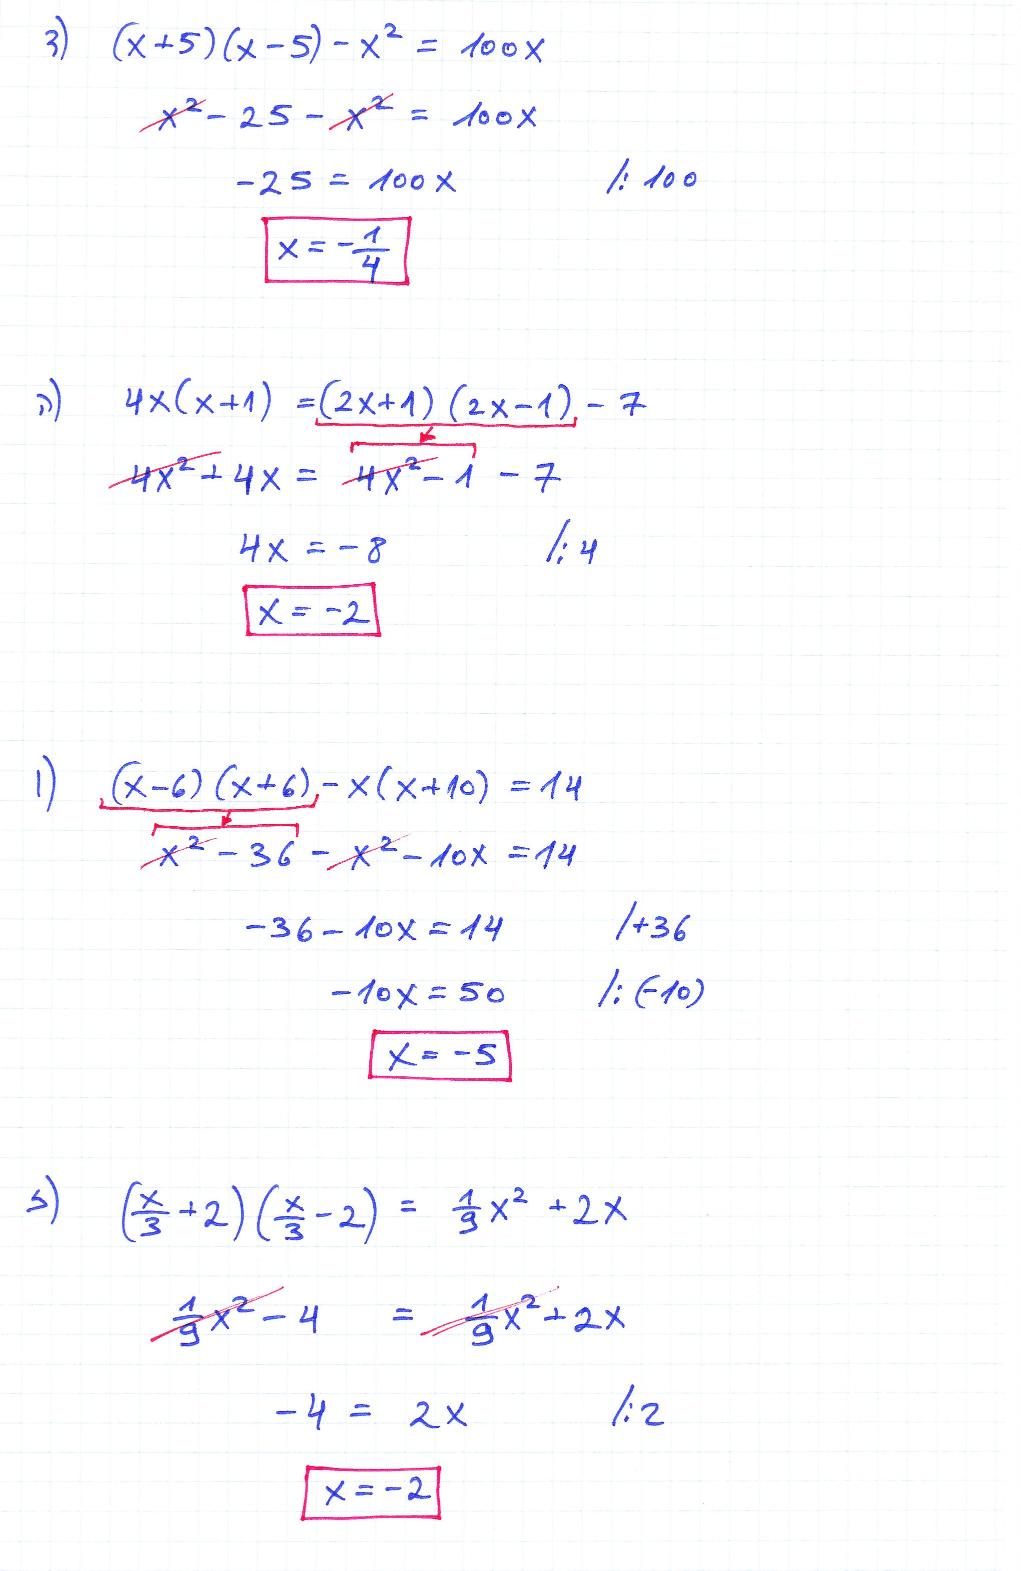 ک) (x+5)(x-5)-x² = 100x
x²-25-x² = 100x
-25 = 100x /: 100
x = -1/4
ה) 4x(x+1) = (2x+1)(2x-1) - 7
4x²+4x = 4x²-1 - 7
4x = -8 /: 4
x = -2
ו) (x-6)(x+6)-x(x+10) = 14
x²-36-x²-10x = 14
-36-10x = 14 /+36
-10x = 50 /: (-10)
x = -5
(x/3+2)(x/3-2) = 1/9x² + 2x
1/9x²-4 = 1/9x²+2x
-4 = 2x /:2
x = -2